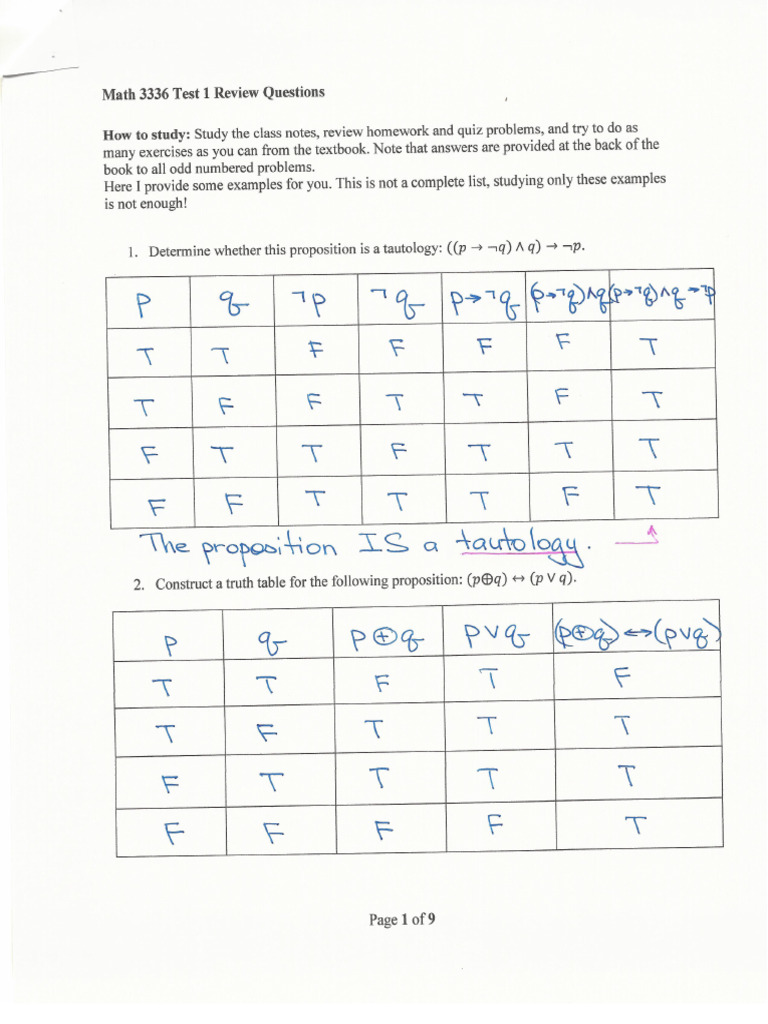 Math 3336 Test 1 Review Questions
How to study: Study the class notes, review homework and quiz problems, and try to do as
many exercises as you can from the textbook. Note that answers are provided at the back of the
book to all odd numbered problems.
Here I provide some examples for you. This is not a complete list, studying only these examples
is not enough!
1. Determine whether this proposition is a tautology: ((p → ¬q) ∧ q) → ¬p.
p q ¬p ¬q p→¬q (p→¬q)∧q (p→¬q)∧q→¬p
T T F F F F T
T F F T T F T
F T T F T T T
F F T T T F T
The proposition IS a tautology.
2. Construct a truth table for the following proposition: (p⊕q) ↔ (p ∨ q).
p q p⊕q p∨q (p⊕q)↔(p∨q)
T T F T F
T F T T T
F T T T T
F F F F T
Page 1 of 9